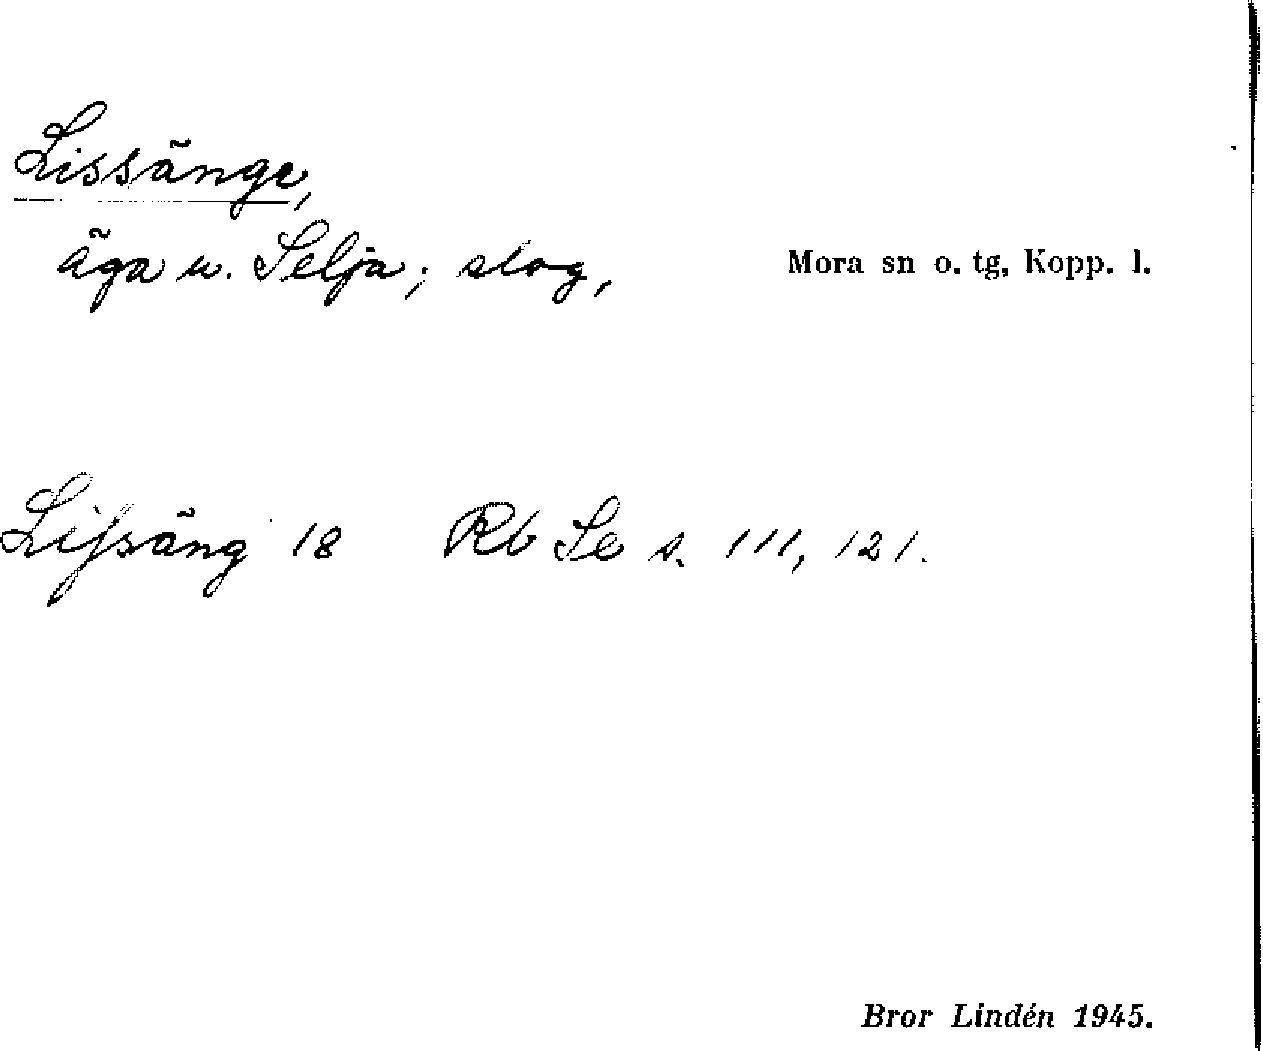 Lissänge,
äga u. Selja; slog,
Mora sn o. tg, Kopp. l.
Lifsäng 18 Rb Se s. 111, 121.
Bror Lindén 1945.